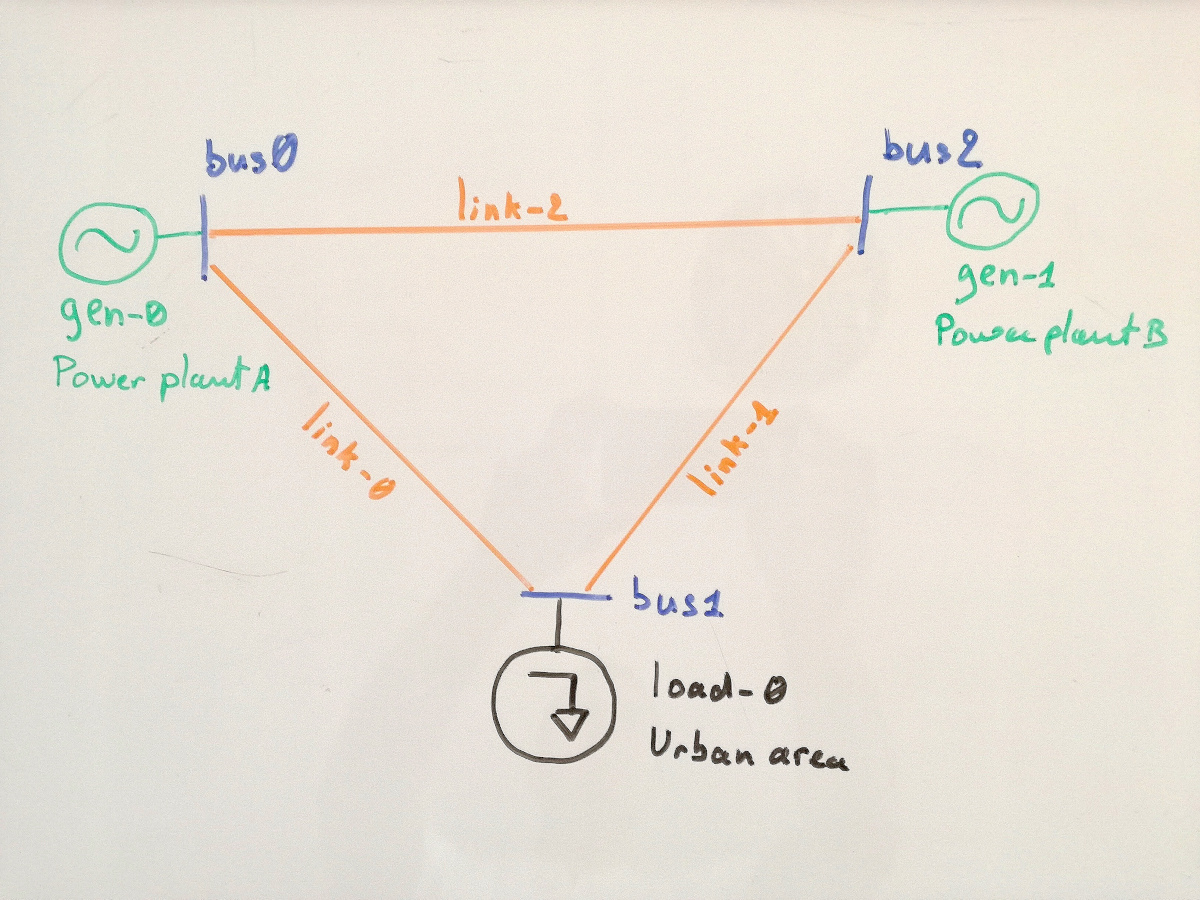 bus0
bus2
link-2
gen-0
Power plant A
gen-1
Power plant B
link-0
link-1
bus1
load-0
Urban area